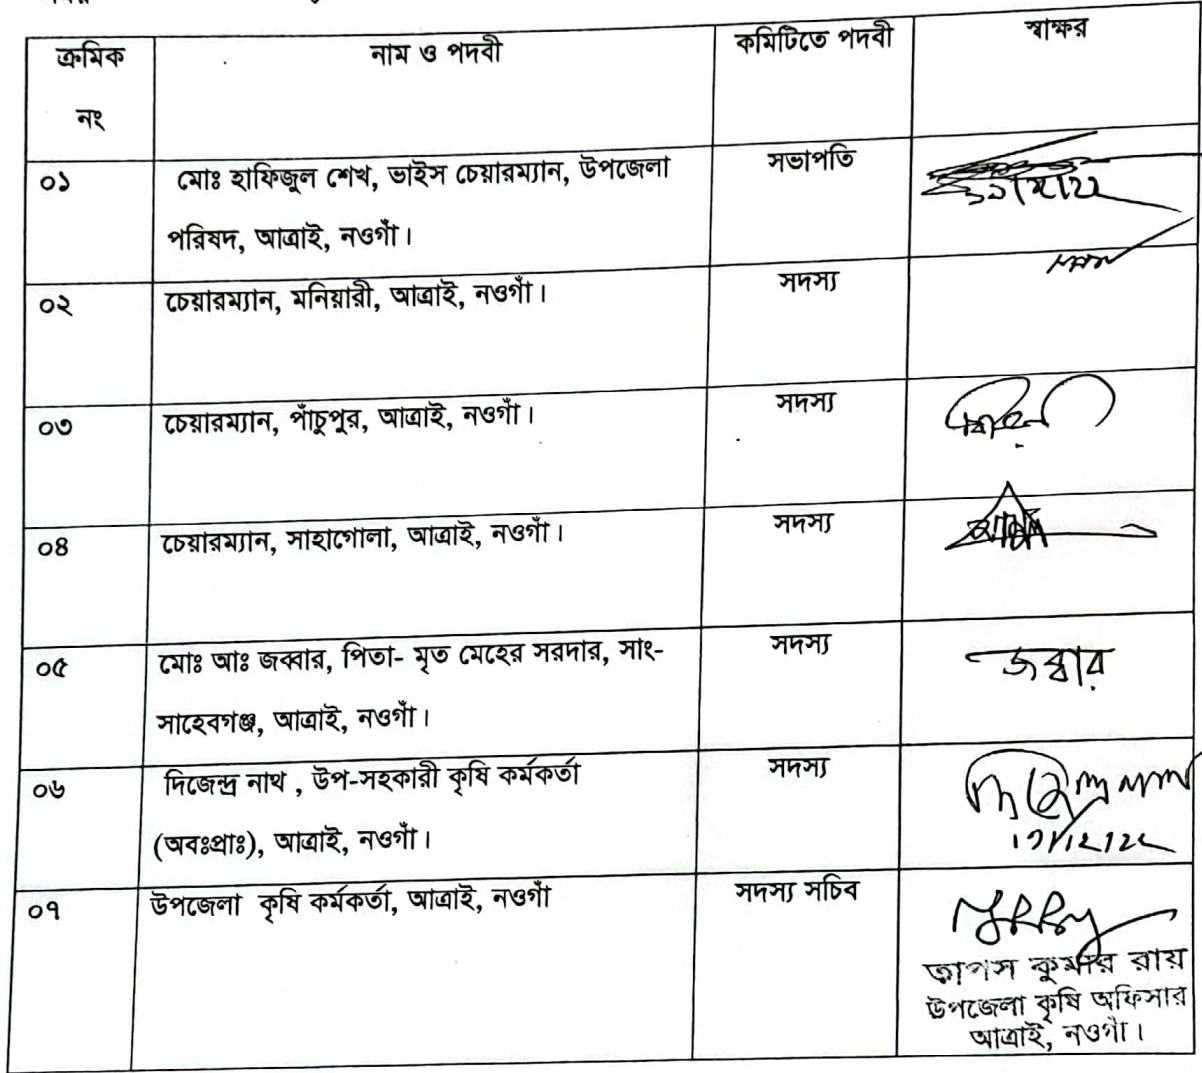 ক্রমিক নং	নাম ও পদবী	কমিটিতে পদবী	স্বাক্ষর
০১	মোঃ হাফিজুল শেখ, ভাইস চেয়ারম্যান, উপজেলা	সভাপতি
পরিষদ, আত্রাই, নওগাঁ।
০২	চেয়ারম্যান, মনিয়ারী, আত্রাই, নওগাঁ।	সদস্য
০৩	চেয়ারম্যান, পাঁচুপুর, আত্রাই, নওগাঁ।	সদস্য
০৪	চেয়ারম্যান, সাহাগোলা, আত্রাই, নওগাঁ।	সদস্য
০৫	মোঃ আঃ জব্বার, পিতা- মৃত মেহের সরদার, সাং-	সদস্য	জব্বার
সাহেবগঞ্জ, আত্রাই, নওগাঁ।
০৬	দিজেন্দ্র নাথ , উপ-সহকারী কৃষি কর্মকর্তা	সদস্য
(অবঃপ্রাঃ), আত্রাই, নওগাঁ।
০৭	উপজেলা কৃষি কর্মকর্তা, আত্রাই, নওগাঁ	সদস্য সচিব
তাপস কুমার রায়
উপজেলা কৃষি অফিসার
আত্রাই, নওগাঁ।